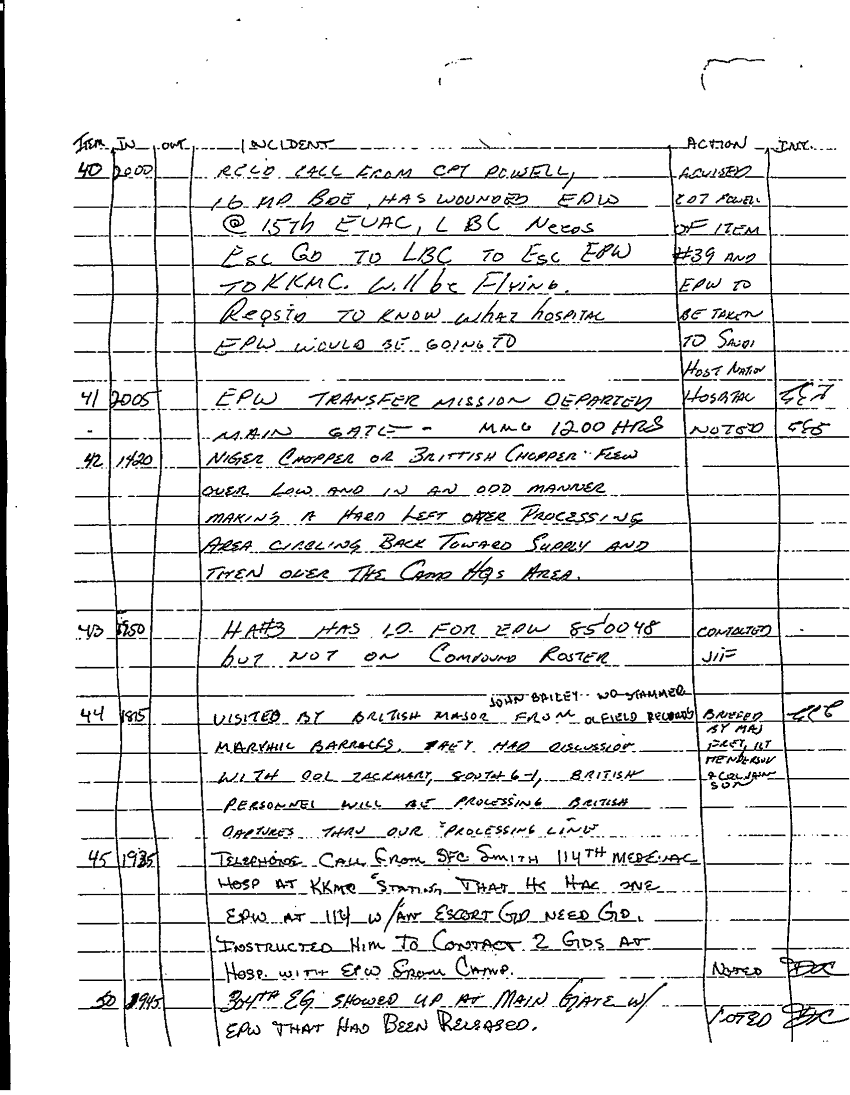 ITEM IN OUT INCIDENT ACTION INT.
40 2000 RCLD CALL FROM CPT POWELL, ADVISED
16 MP BDE, HAS WOUNDED EPW CPT POWELL
@ 15Th EVAC, LBC Needs OF ITEM
Esc GD TO LBC TO Esc EPW #39 AND
TO KKMC. Will be Flying. EPW TO
Reqstd TO KNOW what hospital BE TAKEN
EPW WOULD BE GOING TO TO SAUDI
HOST NATION
41 2005 EPW TRANSFER MISSION DEPARTED HOSPITAL
- MAIN GATE - 1200 HRS NOTED
42 1420 NIGER CHOPPER OR BRITTISH CHOPPER FLEW
OVER LOW AND IN AN ODD MANNER
MAKING A HARD LEFT OVER PROCESSING
AREA CIRCLING BACK TOWARD SUPPLY AND
THEN OVER THE CAMP HQS AREA.
43 1750 HA#3 HAS I.D. FOR EPW 850048 CONTACTED
but NOT ON COMPOUND ROSTER JIF
JOHN BAILEY - WO STAMMER
44 1815 VISITED BY BRITISH MAJOR FROM OLFIELD RECORDS BRIEFED
BY MAJ
MARYHIL BARRACKS. THEY HAD DISCUSSION FRET, 1LT
HENDERSON
WITH COL ZACKMART, SOUTH G-1, BRITISH
SON
PERSONNEL WILL BE PROCESSING BRITISH
CAPTURES THRU OUR "PROCESSING LINE"
45 1935 TELEPHONE CALL FROM SFC SMITH 114TH MEDEVAC
HOSP AT KKMC STATING THAT HE HAC ONE
EPW AT 114 W/AN ESCORT GD NEED GD.
INSTRUCTED HIM TO CONTACT 2 GDS AT
HOSP. WITH EPW FROM CAMP. NOTED
50 1945 304TH EG SHOWED UP AT MAIN GATE W/
EPW THAT HAD BEEN RELEASED. NOTED